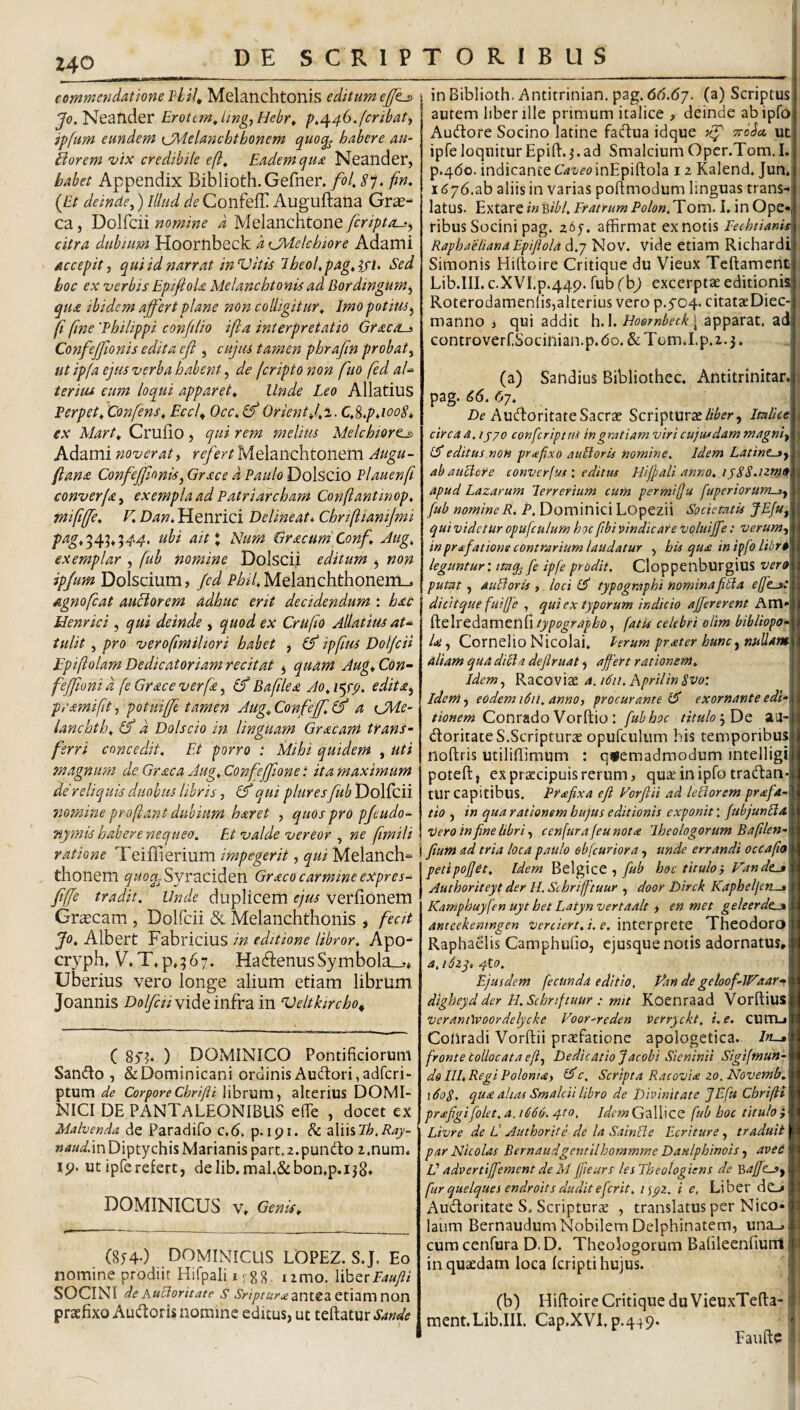 240
DE SCRIPTORIBUS
commendatione Phil. Melanchtonis editum esse
Jo. Neander Erotem. ling, Hebr. p.446. scribat,
ipsum eundem Melanchthonem quoq; habere au-
ctorem vix credibile est. Eadem quæ Neander,
habet Appendix Biblioth. Gesner. fol. 87. fin.
(Et deinde,) Illud de Confess. Augustana Græ-
ca, Dolscii nomine à Melanchtone scripta,
citra dubium Hoornbeck à Melchiore Adami
accepit, qui id narrat in Vitis Theol. pag. 351. Sed
hoc ex verbis Epistolæ Melanchtonis ad Bordingum,
quæ ibidem affert plane non colligitur. Imo potius,
si sine Philippi consilio ista interpretatio Græca
Confessionis edita est, cujus tamen phrasin probat,
ut ipsa ejus verba habent, de scripto non suo sed al-
terius cum loqui apparet. Unde Leo Allatius
Perpet. Consens. Eccl. Occ. & Orient.l.2. c.8.p.1008.
ex Mart. Crusio, qui rem melius Melchiore
Adami noverat, refert Melanchtonem Augu-
stanæ Confessionis, Græce à Paulo Dolscio Plauensi
conversæ, exempla ad Patriarcham Constantinop.
misisse. V. Dan. Henrici Delineat. Christianismi
pag. 343. 344. ubi ait: Num Græcum Conf. Aug.
exemplar, sub nomine Dolscii editum, non
ipsum Dolscium, sed Phil. Melanchthonem
agnoscat auctorem adhuc erit decidendum: hæc
Henrici, qui deinde, quod ex Crusio Allatius at-
tulit, pro verosimiliori habet, & ipsius Dolscii
Epistolam Dedicatoriam recitat, quam Aug. Con-
fessioni à se Græce versæ, & Basileæ Ao. 1559. editæ,
præmisit, potuisse tamen Aug. Confess. & à Me-
lanchth. & à Dolscio in linguam Græcam trans-
ferri concedit. Et porro: Mihi quidem, uti
magnum de Græca Aug. Confessione: ita maximum
de reliquis duobus libris, & qui plures sub Dolscii
nomine prostant dubium hæret, quos pro pseudo-
nymis habere nequeo. Et valde vereor, ne simili
ratione Teissierium impegerit, qui Melanch-
thonem quoq; Syraciden Græco carmine expres-
sisse tradit. Unde duplicem ejus versionem
Græcam, Dolscii & Melanchthonis, fecit
Jo. Albert Fabricius in editione libror. Apo-
cryph. V. T. p. 367. Hactenus Symbola.
Uberius vero longe alium etiam librum
Joannis Dolscii vide infra in Veltkircho.
( 853. ) DOMINICO Pontificiorum
Sancto, & Dominicani ordinis Auctori, adscri-
ptum de Corpore Christi librum, alterius DOMI-
NICI DE PANTALEONIBUS esse, docet ex
Malvenda de Paradiso c.6. p. 191. & aliis Th. Ray-
naud. in Diptychis Marianis part. 2. puncto 2. num.
19. ut ipse refert, de lib. mal. & bon. p. 138.
DOMINICUS v. Genis.
(854.) DOMINICUS LOPEZ. S.J. Eo
nomine prodiit Hispali 1588 12mo. liber Fausti
SOCINI de Auctoritate S Sripturæ antea etiam non
præfixo Auctoris nomine editus, ut testatur Sande
in Biblioth. Antitrinian. pag. 66. 67. (a) Scriptus
autem liber ille primum italice, deinde ab ipso
Auctore Socino latine factua idque κτ πόδα ut
ipse loquitur Epist. 3. ad Smalcium Oper. Tom. I.
p. 460. indicante Caveo in Epistola 12 Kalend. Jun.
1676. ab aliis in varias postmodum linguas trans-
latus. Extare in Bibl. Fratrum Polon. Tom. I. in Ope-
ribus Socini pag. 265. affirmat ex notis Fechtianis
Raphaëliana Epistola d. 7 Nov. vide etiam Richardi
Simonis Histoire Critique du Vieux Testament
Lib. III. c. XVI. p. 449. sub (b) excerptæ editionis
Roterodamensis, alterius vero p. 504. citatæ Diec-
manno, qui addit h. l. Hoornbeck apparat. ad
controvers. Socinian. p. 60. & Tom. I. p. 2. 3.
(a) Sandius Bibliothec. Antitrinitar.
pag. 66. 67.
De Auctoritate Sacræ Scripturæ liber, Italice
circa a. 1570 conscriptus in gratiam viri cujusdam magni,
& editus non præfixo auctoris nomine. Idem Latine,
ab auctore conversus: editus Hispali anno. 1588. 12mo
apud Lazarum Ferrerium cum permissu superiorum,
sub nomine R. P. Dominici Lopezii Societatis JEsu,
qui videtur opusculum hoc sibi vindicare voluisse: verum,
in præfatione contrarium laudatur, his quæ in ipso libro
leguntur: itaq; se ipse prodit. Cloppenburgius vero
putat, auctoris, loci & typographi nomina ficta esse:
dicitque fuisse, qui ex typorum indicio assererent Am-
stelredamensi typographo, satis celebri olim bibliopo-
læ, Cornelio Nicolai. Verum præter hunc, nullam
aliam qua dicta destruat, affert rationem.
Idem, Racoviæ a. 1611. April in 8vo:
Idem, eodem 1611. anno, procurante & exornante edi-
tionem Conrado Vorstio: sub hoc titulo; De au-
ctoritate S. Scripturæ opusculum his temporibus
nostris utilissimum: quemadmodum intelligi
potest, ex præcipuis rerum, quæ in ipso tractan-
tur capitibus. Præfixa est Vorstii ad lectorem præfa-
tio, in qua rationem hujus editionis exponit: subjuncta
vero in fine libri, censura seu notæ Theologorum Basilen-
sium ad tria loca paulo obscuriora, unde errandi occasio
peti posset. Idem Belgice, sub hoc titulo; Van de
Authoriteyt der H. Schrifftuur, door Dirck Kaphelsen
Kamphuysen uyt het Latyn vertaalt, en met geleerde
Anteekeningen verciert. i. e. interprete Theodoro
Raphaëlis Camphusio, ejusque notis adornatus.
a. 1623. 4to.
Ejusdem secunda editio, Van de geloof-Waar-
digheyd der H. Schriftuur: mit Koenraad Vorstius
verantwoordelycke Voor-reden verryckt. i. e. cum
Conradi Vorstii præfatione apologetica. In
fronte collocata est, Dedicatio Jacobi Sieninii Sigismun-
do III. Regi Poloniæ, &c. Scripta Racoviæ 20. Novemb.
1608. quæ alias Smalcii libro de Divinitate JEsu Christi
præfigi solet. a. 1666. 4to. Idem Gallice sub hoc titulo;
Livre de L' Authorité de la Saincte Ecriture, traduit
par Nicolas Bernaud gentilhommme Daulphinois, avec
L' advertissement de M ssieurs les Theologiens de Basse,
sur quelques endroits dudit escrit. 1592. i e. Liber de
Auctoritate S. Scripturæ, translatus per Nico-
laum Bernaudum Nobilem Delphinatem, una
cum censura D. D. Theologorum Basileensium
in quædam loca scripti hujus.
(b) Histoire Critique du Vieux Testa-
ment. Lib. III. Cap. XVI. p. 449.
Fauste